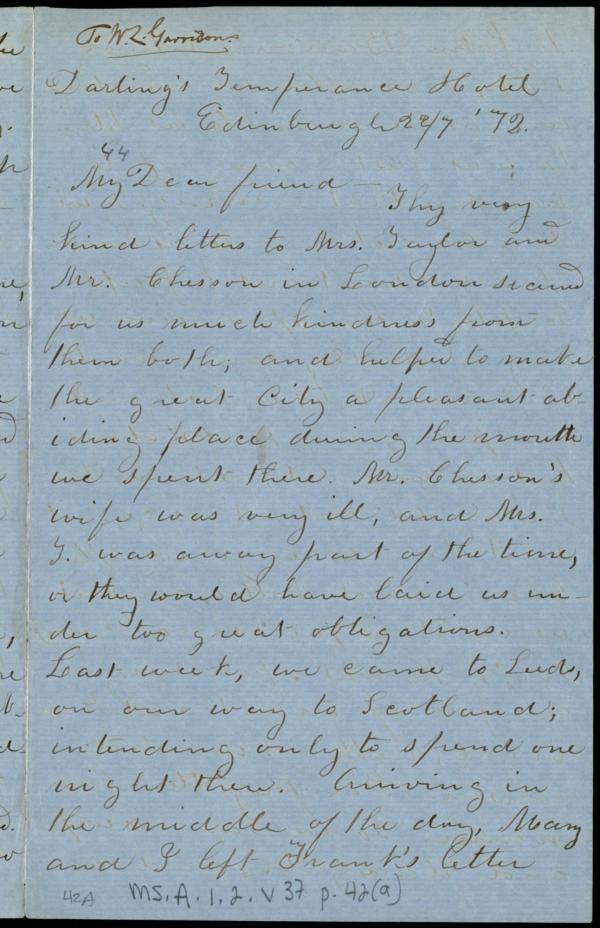 To W. L. Garrison.
Darling's Temperance Hotel
Edinburgh 22/7 '72.
44
My Dear friend —
Thy very
kind letters to Mrs. Taylor and
Mr. Chesson in London secured
for us much kindness from
them both; and helped to make
the great City a pleasant ab-
iding place during the month
we spent there. Mr. Chesson's
wife was very ill, and Mrs.
T. was away part of the time,
or they would have laid us un-
der too great obligations.
Last week, we came to Leeds,
on our way to Scotland;
intending only to spend one
night there. Arriving in
the middle of the day, Mary
and I left Frank's letter
42A MS.A.1.2. v 37 p. 42(a)